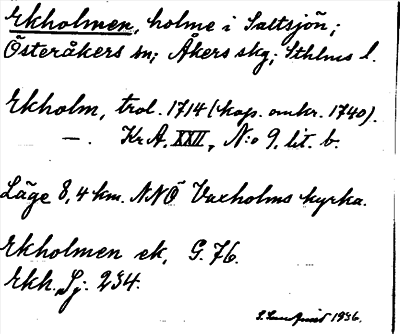 Ekholmen, holme i Saltsjön;
Österåkers sn; Åkers skg; Sthlms l.
Ekholm, trol. 1714 (kop. omkr. 1740).
—. KrA, XXII, N:o 9, lit. b.
Läge 8,4 km. NNÖ Vaxholms kyrka.
Ekholmen ek, G. 76.
Ekh. Sj: 234.
S. Lundquist 1936.